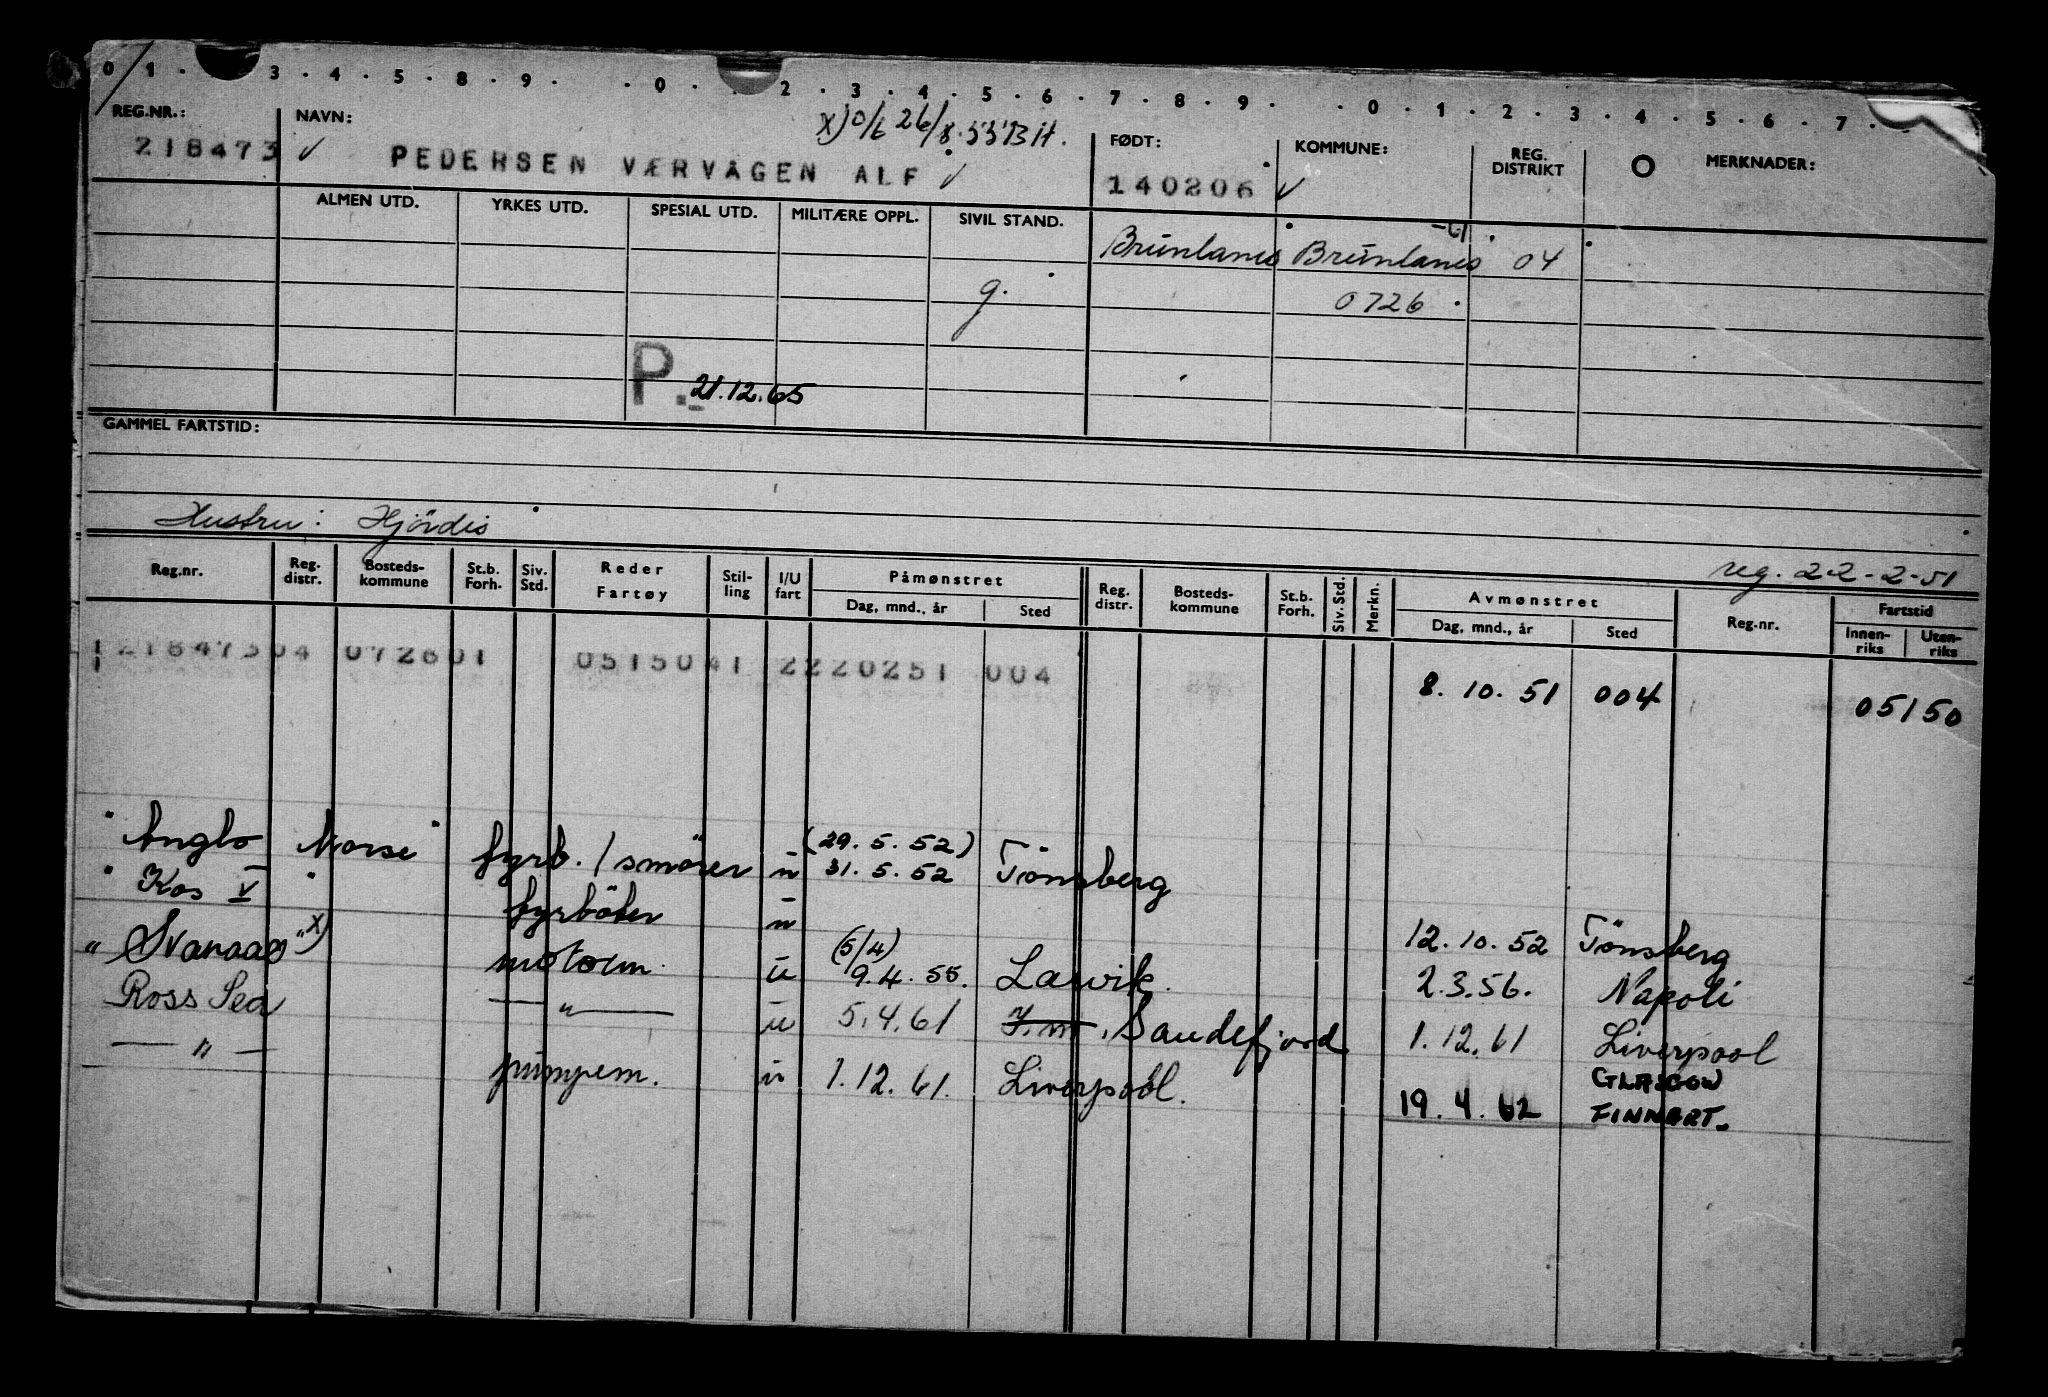 0 1 . 3 . 4 . 5 . 8 . 9 . . 0 . 2 . 3 . 4 . 5 . 6 . 7 . 8 . 9 . . 0 . 1 . 2 . 3 . 4 . 5 . 6 . 7 .
REG.NR.: NAVN: X) o/t 26/8.55 BH. FØDT: KOMMUNE: REG. DISTRIKT O MERKNADER:
218473 ✓ PEDERSEN VÆRVAGEN ALF ✓ 140206 ✓
ALMEN UTD. YRKES UTD. SPESIAL UTD. MILITÆRE OPPL. SIVIL STAND.
Brunlanes Brunlanes -61 04
g. 0726
P. 21.12.65
GAMMEL FARTSTID:
Hustru: Hjördis
reg. 22-2-51
Reg.nr. Reg. distr. Bosteds- kommune St.b. Forh. Siv. Std. Reder Fartøy Stil- ling I/U fart Påmønstret Dag, mnd., år Sted Reg. distr. Bosteds- kommune St.b. Forh. Siv. Std. Merkn. Avmønstret Dag, mnd., år Sted Reg.nr. Fartstid Innen- riks Uten- riks
1 21847304 072601 0515041 2220251 004
1
8. 10. 51 004 05150
"Anglo Norse" fyrb. / smører u (29. 5. 52) 31. 5. 52 Tönsberg
"Kos V" fyrböter u 12. 10. 52 Tönsberg
"Svanaag" X) motorm. u (5/4) 9. 4. 55. Larvik. 2. 3. 56. Napoli
Ross Sea — " — u 5. 4. 61 Sandefjord 1. 12. 61 Liverpool
— " — pumpem. u 1. 12. 61. Liverpool. 19. 4. 62 (GLASGOW) FINNART.